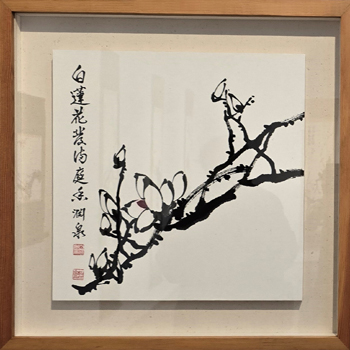 白蓮花發滿庭香 潤泉